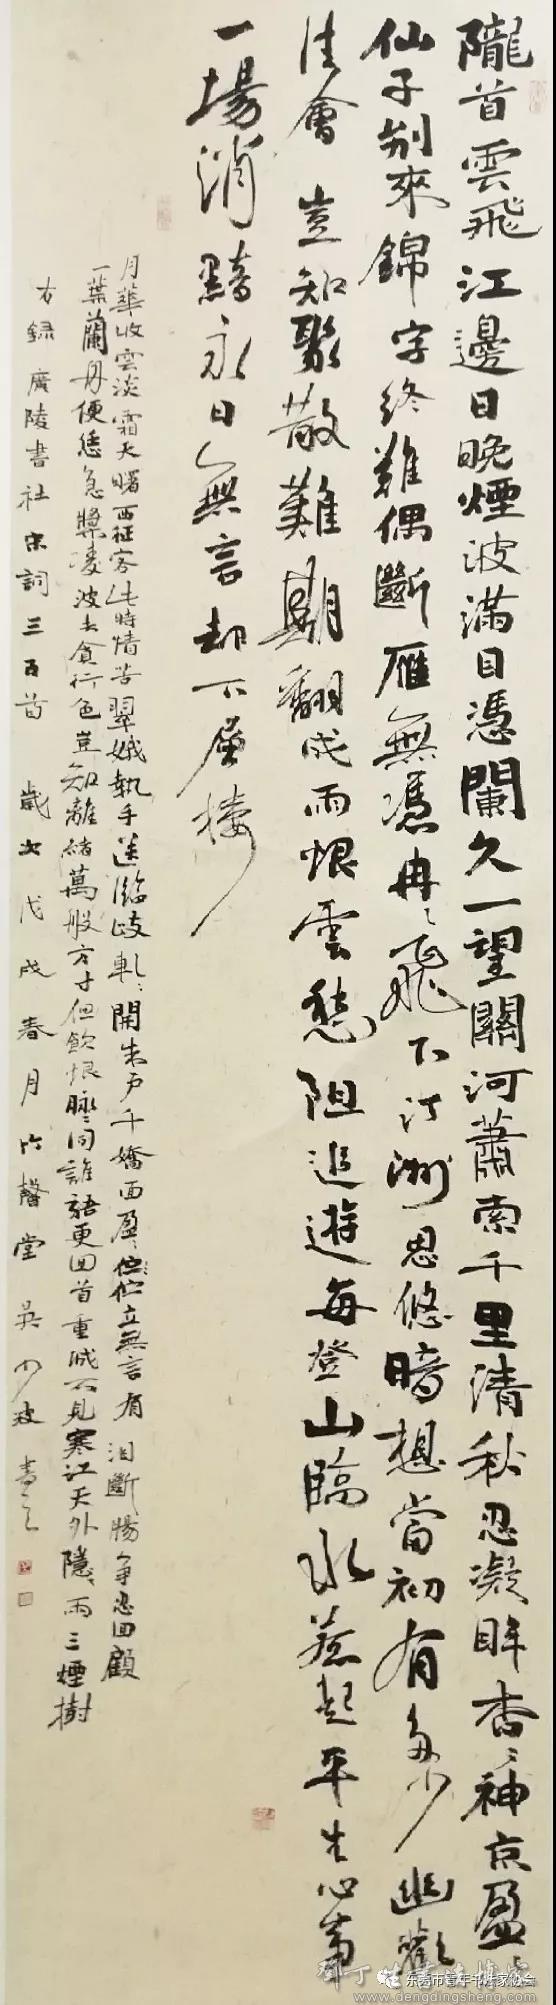 隴首雲飛江邊日晚煙波滿目憑闌久一望關河蕭索千里清秋忍凝眸杳〻神京盈〻
仙子别來錦字終難偶斷雁無憑冉〻飛下汀洲思悠暗想當初有多少幽歡
佳會豈知聚散難期翻成雨恨雲愁阻追遊每登山臨水惹起平生心事
一場消黯永日無言却下層樓
月華收雲淡霜天曙西征客此時情苦翠娥執手送臨歧軋〻開朱户千嬌面盈〻佇立無言有淚斷腸争忍回顧
一葉蘭舟便恁急槳凌波去貪行色豈知離緒萬般方寸但飲恨脉〻同誰語更回首重城不見寒江天外隱〻兩三煙樹
右録廣陵書社宋詞三百首 歲次戊戌春月竹馨堂吴少波書之
东莞市青年书法家协会
www.dengdingsheng.com